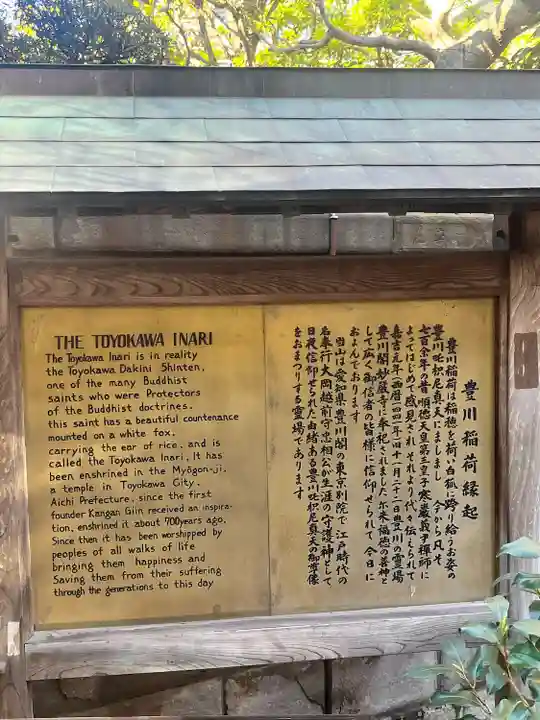 THE TOYOKAWA INARI
The Toyokawa Inari is in reality
the Toyokawa Dakini Shinten,
one of the many Buddhist
saints who were Protectors
of the Buddhist doctrines.
this saint has a beautiful countenance
mounted on a white fox,
carrying the ear of rice, and is
called the Toyokawa Inari, It has
been enshrined in the Myōgon-ji,
a temple in Toyokawa City,
Aichi Prefecture, since the first
founder Kangan Giin received an inspira-
tion, enshrined it about 700years ago,
Since then it has been worshipped by
peoples of all walks of life
bringing them happiness and
Saving them from their suffering
through the generations to this day
豊川稲荷縁起
豊川稲荷は稲穂を荷い白狐に跨り給うお姿の
豊川吒枳尼真天にましまし 今から凡そ
七百余年の昔 順徳天皇第三皇子寒巌義尹禅師に
よってはじめて感見され それより代々伝えられて
嘉吉元年(西暦一四四一年)十一月二十二日豊川の霊場
豊川閣妙厳寺に奉祀されました 尓来福徳の善神と
して広く御信者の皆様に信仰せられて 今日に
およんでおります
当山は愛知県豊川閣の東京別院で 江戸時代の
名奉行大岡越前守忠相公が生涯の守護神として
日夜信仰せられた由緒ある豊川吒枳尼真天の御尊像
をおまつりする霊場であります